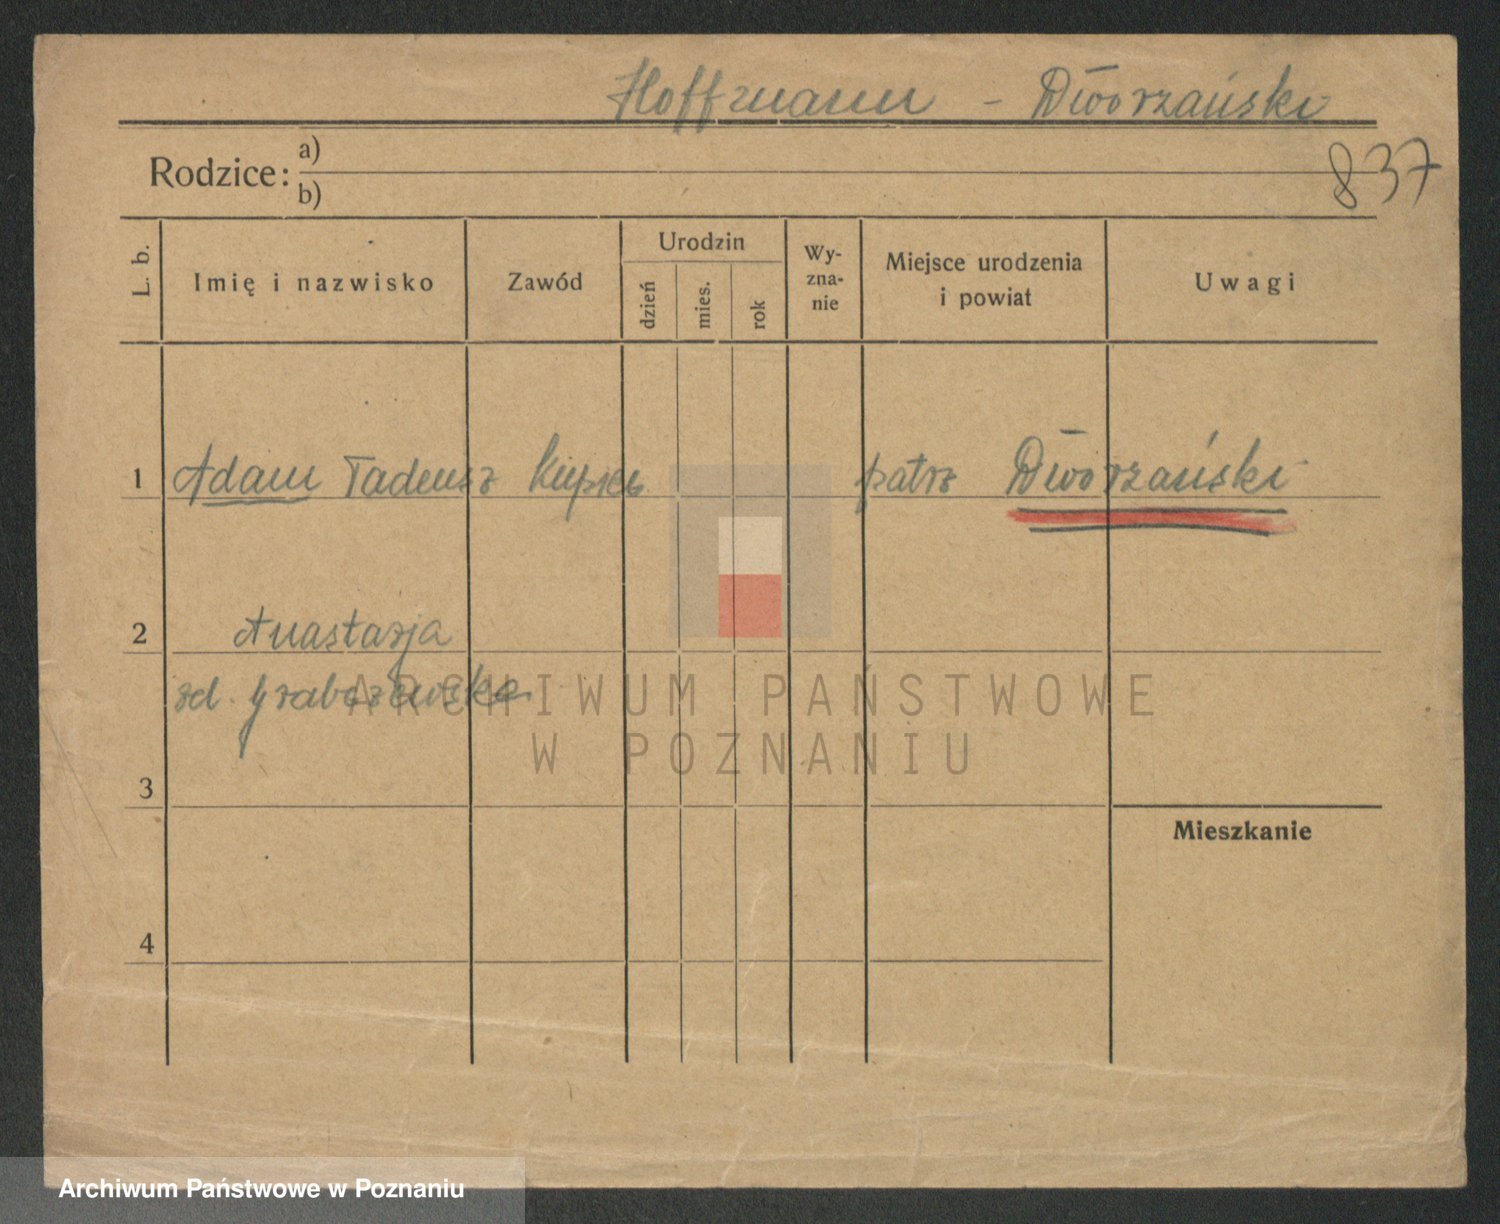 Hoffmann - Dworzański
837
Rodzice: a)
b)
L. b.
Imię i nazwisko
Zawód
Urodzin
dzień
mies.
rok
Wy-
zna-
nie
Miejsce urodzenia
i powiat
Uwagi
1 Adam Tadeusz Kupiec patrz Dworzański
2 Anastazja
zd. Grabczewska
3
Mieszkanie
4
ARCHIWUM PAŃSTWOWE
W POZNANIU
Archiwum Państwowe w Poznaniu